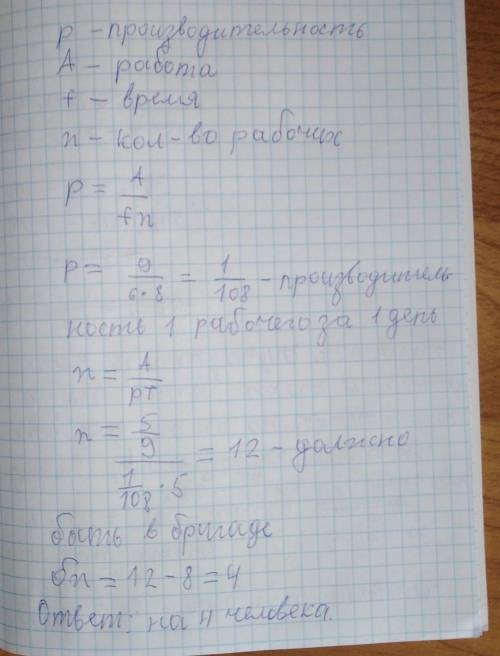 p – производительность
A – работа
t – время
n – кол-во рабочих
p = A / tn
p = 9 / 6·8 = 1 / 108 – производитель
ность 1 рабочего за 1 день
n = A / pT
n = 5/9 / 1/108 · 5 = 12 – должно
быть в бригаде
бn = 12 – 8 = 4
Ответ: на 4 человека.